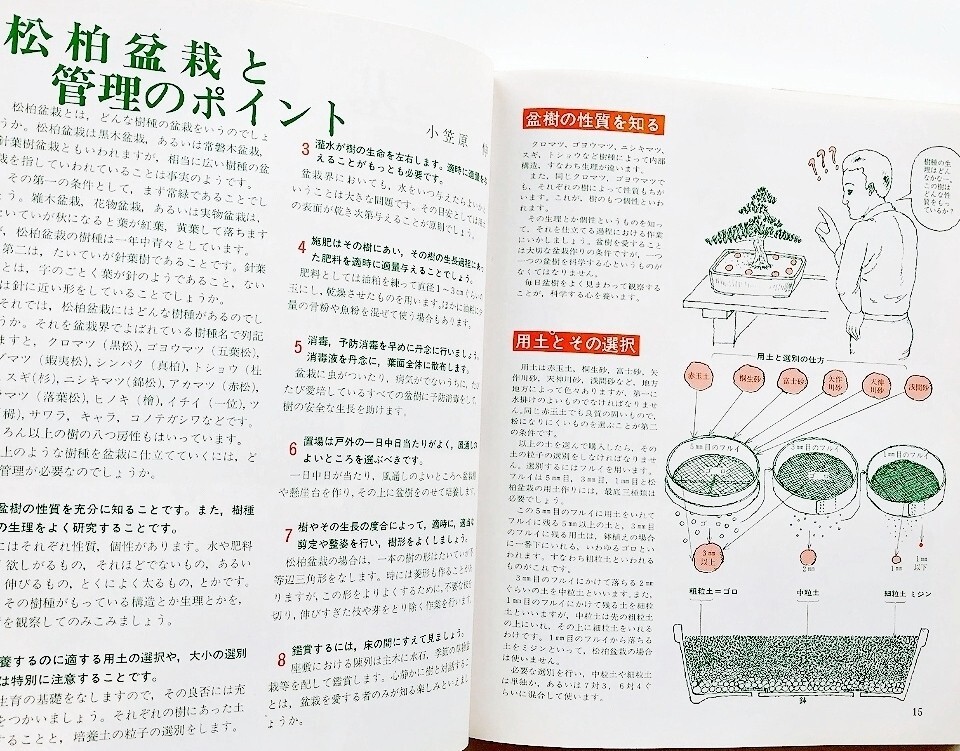 松柏盆栽と
管理のポイント
小笠原
松柏盆栽とは，どんな樹種の盆栽をいうのでしょ
うか。松柏盆栽は黒木盆栽，あるいは常磐木盆栽，
針葉樹盆栽ともいわれますが，相当に広い樹種の盆
栽を指していわれていることは事実のようです。
その第一の条件として，まず常緑であることでし
ょう。雑木盆栽，花物盆栽，あるいは実物盆栽は，
いていが秋になると葉が紅葉，黄葉して落ちます
が，松柏盆栽の樹種は一年中青々としています。
第二は，たいていが針葉樹であることです。針葉
とは，字のごとく葉が針のようであること，ない
は針に近い形をしていることでしょうか。
それでは，松柏盆栽にはどんな樹種があるのでし
うか。それを盆栽界でよばれている樹種名で列記
ますと，クロマツ（黒松），ゴヨウマツ（五葉松），
マツ（蝦夷松），シンパク（真柏），トショウ（杜
スギ（杉），ニシキマツ（錦松），アカマツ（赤松），
マツ（落葉松），ヒノキ（檜），イチイ（一位），ツ
栂），サワラ，キャラ，コノテガシワなどです。
ろん以上の樹の八つ房性もはいっています。
上のような樹種を盆栽に仕立てていくには，ど
管理が必要なのでしょうか。
盆樹の性質を充分に知ることです。また，樹種
の生理をよく研究することです。
にはそれぞれ性質，個性があります。水や肥料
欲しがるもの，それほどでないもの，あるい
伸びるもの，とくによく太るもの，とかです。
その樹種がもっている構造とか生理とかを，
を観察してのみこみましょう。
養するのに適する用土の選択や，大小の選別
は特別に注意することです。
生育の基礎をなしますので，その良否には充
をつかいましょう。それぞれの樹にあった土
することと，培養土の粒子の選別をします。
3 灌水が樹の生命を左右します。適時に適量を
えることがもっとも必要です。
盆栽界においても，水をいつ与えたらよいか
いうことは大きな問題です。その目安としては
の表面が乾き次第与えることが原則でしょう。
4 施肥はその樹にあい，その樹の生長過程に
た肥料を適時に適量与えることでしょう。
肥料としては油粕を練って直径1〜3cmぐらい
玉にし，乾燥させたものを用います。ほかに
量の骨粉や魚粉を混ぜて使う場合もあります。
5 消毒，予防消毒を早めに丹念に行いましょう。
消毒液を丹念に，葉面全体に散布します。
盆栽に虫がついたり，病気がでないうちに，
たび愛培しているすべての盆樹に予防消毒をして
樹の安全な生長を助けます。
6 置場は戸外の一日中日当たりがよく，風通しの
よいところを選ぶべきです。
一日中日が当たり，風通しのよいところへ盆棚
や懸崖台を作り，その上に盆樹をのせて培養します。
7 樹やその生長の度合によって，適時に，適当
剪定や整姿を行い，樹形をよくしましょう。
松柏盆栽の場合は，一本の樹の形はたいていが
等辺三角形をなします。時には菱形も作ること
りますが，この形をよりよくするために，不要な枝を
切り，伸びすぎた枝や芽をとり除く作業を行います。
8 鑑賞するには，床の間にすえて見ましょう。
座敷における陳列は主木に水石，季節の草物盆
栽等を配して鑑賞します。心静かに樹と対話する
とは，盆栽を愛する者のみが知る楽しみといえま
ょうか。
盆樹の性質を知る
クロマツ，ゴヨウマツ，ニシキマツ，
スギ，トショウなど樹種によって内部
構造，すなわち生理が違います。
また，同じクロマツ，ゴヨウマツで
も，それぞれの樹によって性質もちが
います。これが，樹のもつ個性といわ
れます。
その生理とか個性というものを知っ
て，それを仕立てる過程における作業
にいかしましょう。盆樹を愛すること
は大切な盆栽作りの条件ですが，一つ
一つの盆樹を科学する心というものが
なくてはなりません。
毎日盆樹をよく見まわって観察する
ことが，科学する心を養います。
???
樹種の生
理はどん
なかな…
この樹は
どんな性
質をもっ
ているか？
用土とその選択
用土は赤玉土，桐生砂，富士砂，矢
作川砂，天神川砂，浅間砂など，地方
地方によって色々ありますが，第一に
水掛けのよいものでなければなりませ
ん。同じ赤玉土でも良質の固いもので，
粉になりにくいものを選ぶことが第二
の条件です。
以上の土を選んで購入したら，その
土の粒子の選別をしなければなりませ
ん。選別するにはフルイを用います。
フルイは5㎜目，3㎜目，1㎜目と松
柏盆栽の用土作りには，最底三種類は
必要でしょう。
この5㎜目のフルイに用土をいれて
フルイに残る5㎜以上の土と，3㎜目
のフルイに残る用土は，鉢植えの場合
に一番下にいれる，いわゆるゴロとい
われます。すなわち粗粒土といわれる
ものがこれです。
3㎜目のフルイにかけて落ちる2㎜
ぐらいの土を中粒土といいます。また，
1㎜目のフルイにかけて残る土を細粒
土といいますが，中粒土は先の粗粒土
の上にいれ，その上に細粒土をいれる
わけです。1㎜目のフルイから落ちる
土をミジンといって，松柏盆栽の場合
は使いません。
必要な選別を行い，中粒土や細粒土
は単独か，あるいは7対3，6対4ぐ
らいに混合して使います。
用土と選別の仕方
赤玉土
桐生砂
富士砂
矢作
川砂
天神
川砂
浅間砂
5㎜目のフルイ
3㎜目のフルイ
1㎜目のフルイ
3㎜
以上
2㎜
1㎜
1㎜
以下
粗粒土=ゴロ
中粒土
細粒土
ミジン
鉢
15